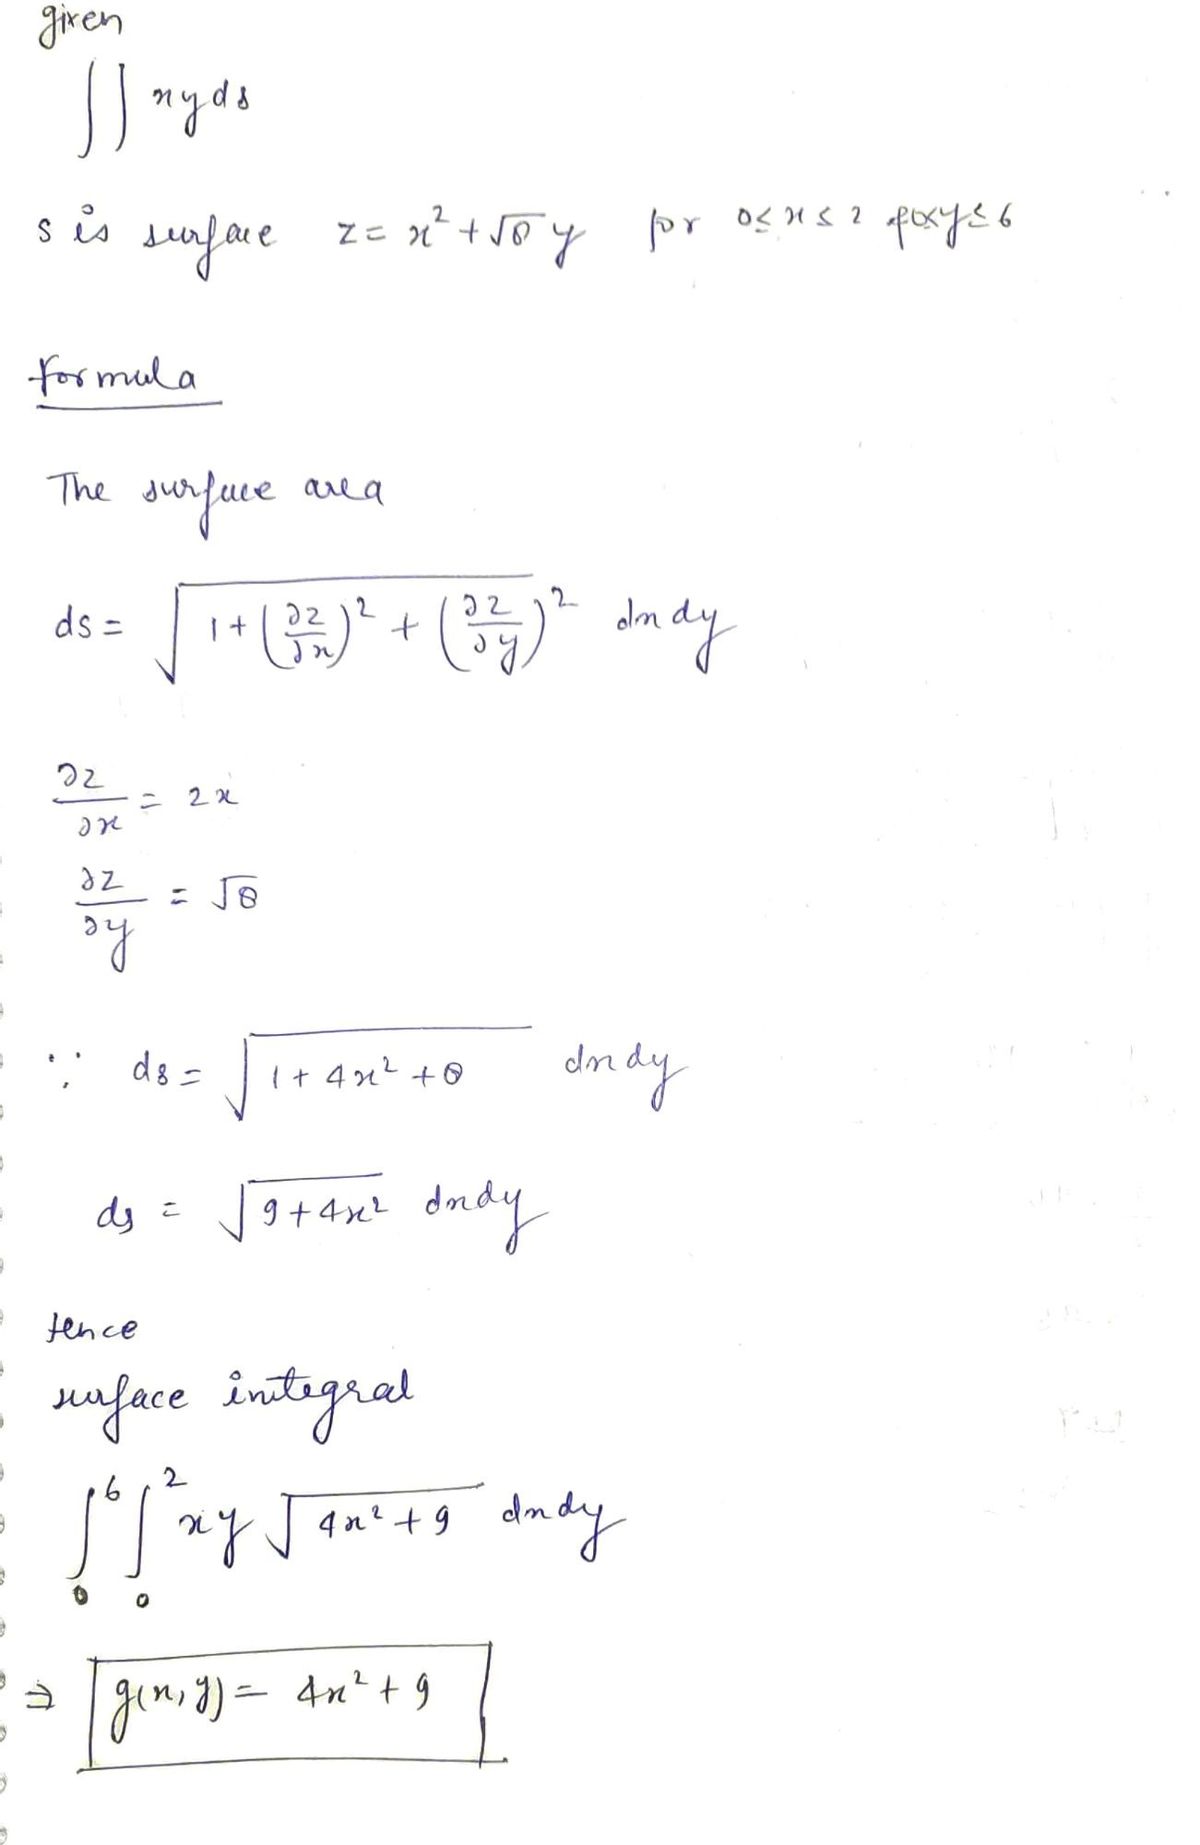 given
∫∫ xyds
s is surface z = x² + √8 y for 0 ≤ x ≤ 2 0≤y≤6
formula
The surface area
ds = √(1+(∂z/∂x)² + (∂z/∂y)²) dxdy
∂z/∂x = 2x
∂z/∂y = √8
∵ ds = √(1+4x²+8) dxdy
ds = √(9+4x²) dxdy
Hence
surface initegral
∫₀⁶ ∫₀² xy √(4x²+9) dxdy
⇒ g(x,y) = 4x²+9